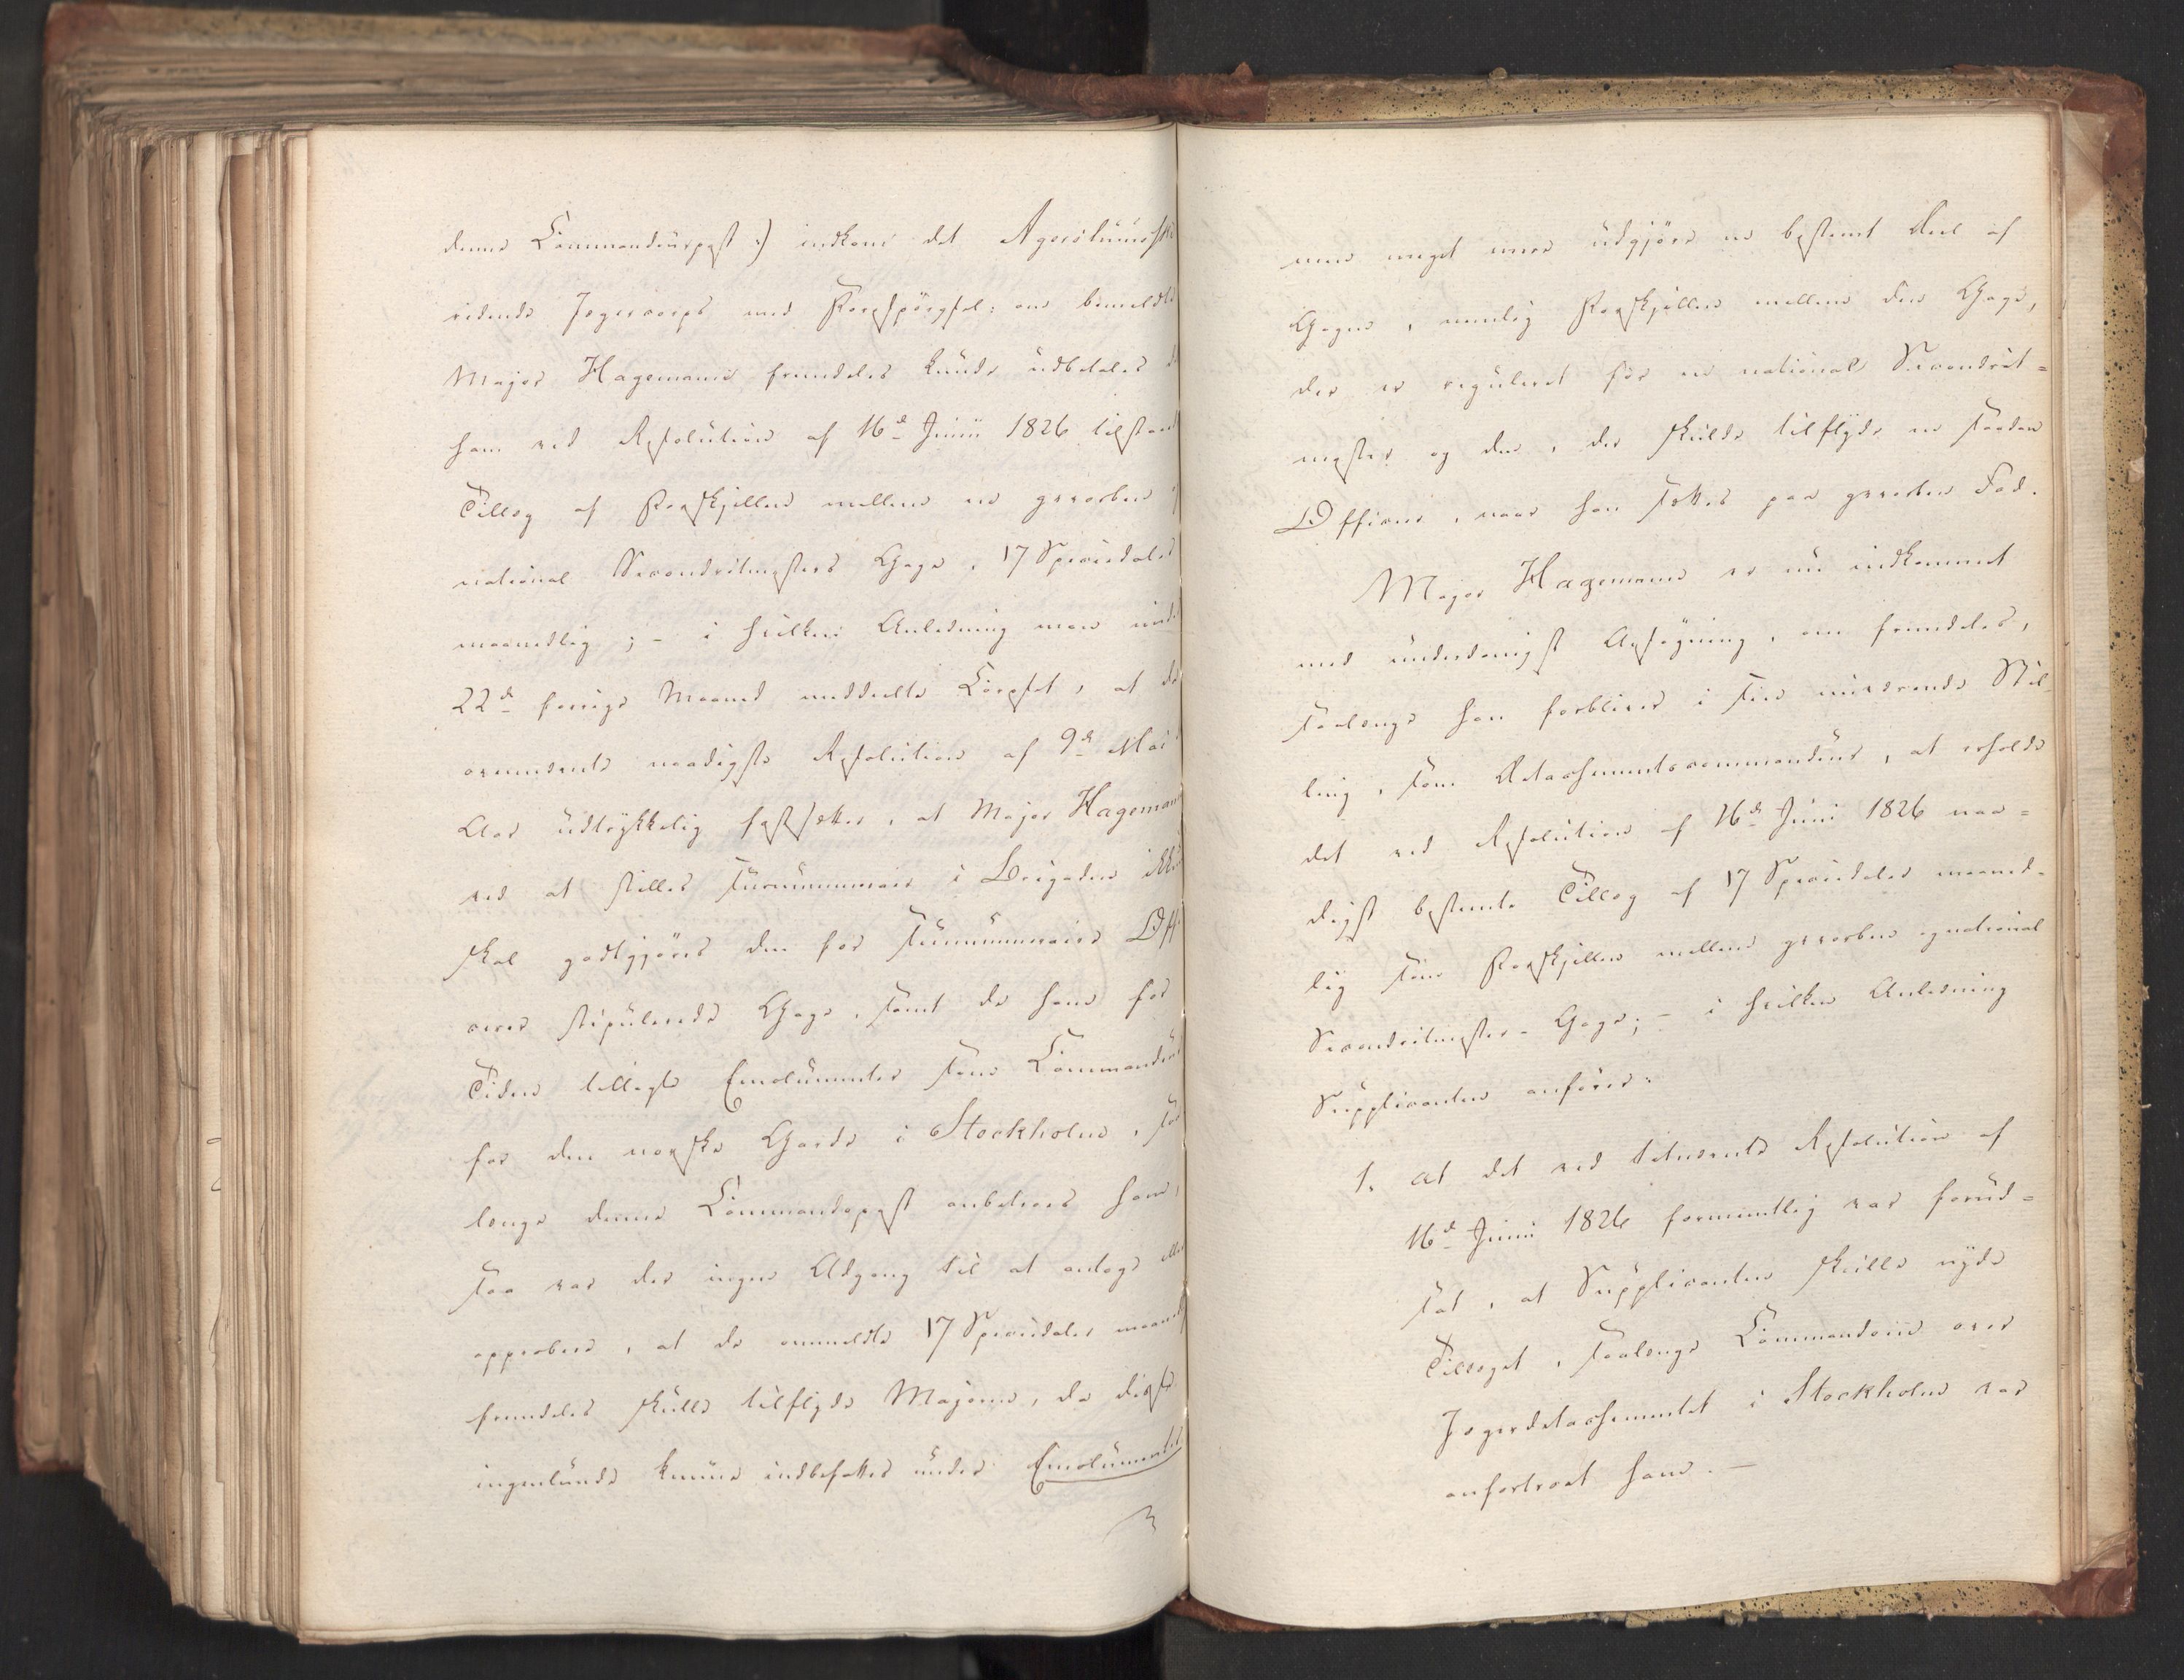 denne Commandeurpost :) indkom det Agershuusiske
ridende Jægercorps med Forespørgsel: om bemeldte
Major Hagemann fremdeles kunde udbetales det
ham ved Resolution af 16d Junii 1826 tilstaaede
Tillæg af Forskjellen mellem en geworben og
national Secondritmesters Gage, 17 Speciedaler
maanedlig; - i hvilken Anledning man under
22d forrige Maaned meddeelte Corpset, at da
ovennævnte naadigste Resolution af 9d Mai d.
Aar udtrykkelig fastsætter, at Major Hagemann
ved at stilles Surnummerair i Brigaden ikkun
skal godtgjøres den for Surnummeraire Offi
cerer stipulerede Gage, samt de ham for
Tiden tillagte Emolumenter som Commandeur
for den norske Garde i Stockholm, saa
længe denne Commandopost anbetroes ham,
saa var der ingen Adgang til at antage eller
approbere, at de ommeldte 17 Speciedaler maanedl.
fremdeles skulle tilflyde Majoren, da disse
ingenlunde kunne indbefattes under Emolumenter
men meget mere udgjøre en bestemt Deel af
Gagen, nemlig Forskjellen mellem den Gage,
der er reguleret for en national Secondrit=
mester og den, der skulde tilflyde en saadan
Officier, naar han sættes paa geworben Fod.
Major Hagemann er nu indkommet
med underdanigst Ansøgning, om fremdeles,
saalænge han forbliver i sin nuværende Stil-
ling, som Detachementscommandeur, at erholde
det ved Resolution af 16d Juni 1826 naa=
digst bestemte Tillæg af 17 Speciedaler maaned-
lig som Forskjellen mellem geworben og national
Secondritmester-Gage; - i hvilken Anledning
Supplicanten anfører:
1. at det ved bemeldte Resolution af
16d Junii 1826 formentlig var forud=
sat, at Supplicanten skulle nyde
Tillæget, saalænge Commandoen over
Jægerdetachementet i Stockholm var
anfortroet ham. -